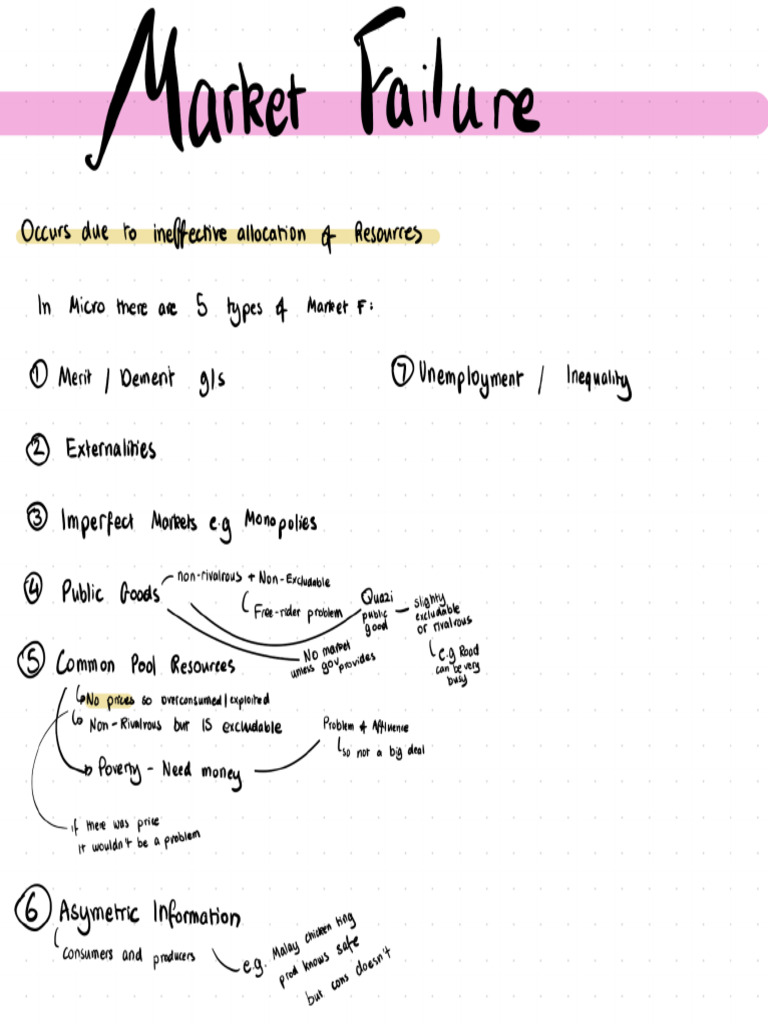 Market Failure
Occurs due to ineffective allocation of Resources
In Micro there are 5 types of Market F:
① Merit / Demerit g/s
⑦ Unemployment / Inequality
② Externalities
③ Imperfect Markets e.g Monopolies
④ Public Goods
non-rivalrous + Non-Excludable
Free-rider problem
Quazi
public
good
slighty
excludable
or rivalrous
e.g Road
can be very
busy
No market
unless gov provides
⑤ Common Pool Resources
No prices so overconsumed/exploited
Non-Rivalrous but IS excludable
Poverty - Need money
Problem of Affluence
so not a big deal
if there was price
it wouldn't be a problem
⑥ Asymetric Information
consumers and producers
e.g. Malay chicken ting
prod knows safe
but cons doesn't